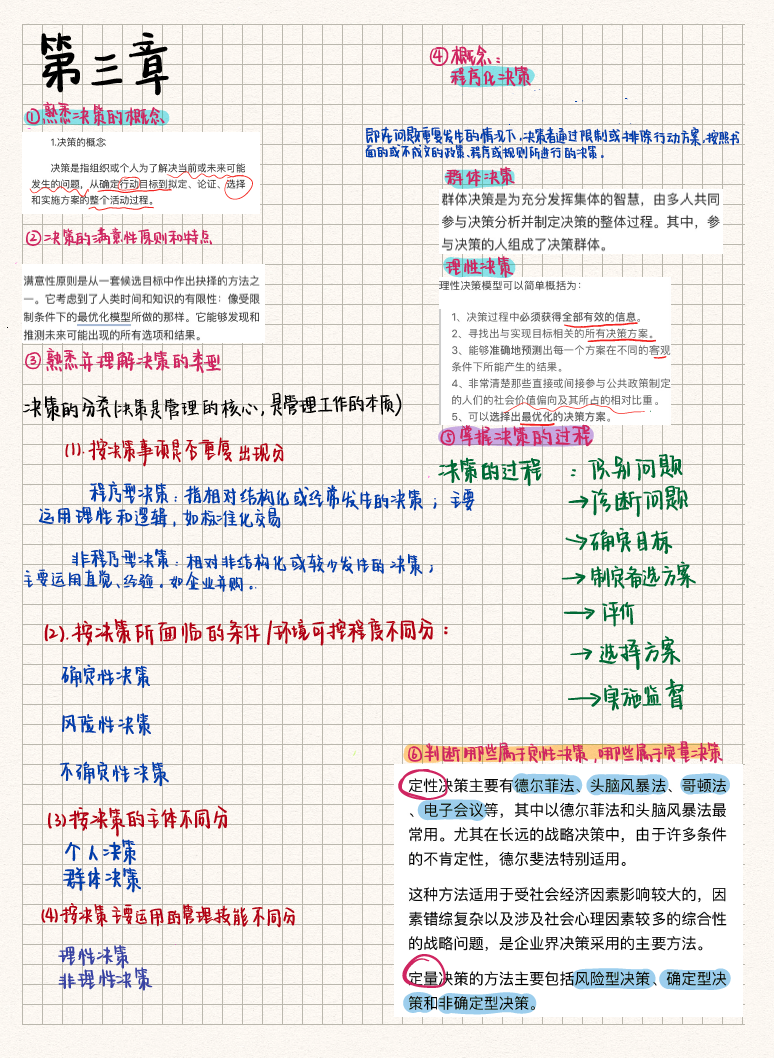 第三章
①熟悉决策的概念
1.决策的概念
决策是指组织或个人为了解决当前或未来可能
发生的问题，从确定行动目标到拟定、论证、选择
和实施方案的整个活动过程。
②决策的满意性原则和特点
满意性原则是从一套候选目标中作出抉择的方法之
一。它考虑到了人类时间和知识的有限性：像受限
制条件下的最优化模型所做的那样。它能够发现和
推测未来可能出现的所有选项和结果。
③熟悉并理解决策的类型
决策的分类(决策是管理的核心,是管理工作的本质)
(1).按决策事项是否重复出现分
程序型决策：指相对结构化或经常发生的决策；主要
运用理性和逻辑，如标准化交易
非程序型决策：相对非结构化或较少发生的决策；
主要运用直觉、经验。如企业并购。
(2).按决策所面临的条件/环境可控程度不同分：
确定性决策
风险性决策
不确定性决策
(3)按决策的主体不同分
个人决策
群体决策
(4)按决策主要运用的管理技能不同分
理性决策
非理性决策
④概念：
程序化决策
即在问题重复发生的情况下,决策者通过限制或排除行动方案,按照书
面的或不成文的政策、程序或规则所进行的决策。
群体决策
群体决策是为充分发挥集体的智慧，由多人共同
参与决策分析并制定决策的整体过程。其中，参
与决策的人组成了决策群体。
理性决策
理性决策模型可以简单概括为：
1、决策过程中必须获得全部有效的信息。
2、寻找出与实现目标相关的所有决策方案。
3、能够准确地预测出每一个方案在不同的客观
条件下所能产生的结果。
4、非常清楚那些直接或间接参与公共政策制定
的人们的社会价值偏向及其所占的相对比重。
5、可以选择出最优化的决策方案。
⑤掌握决策的过程
决策的过程：识别问题
→诊断问题
→确定目标
→制定备选方案
→评价
→选择方案
→实施监督
⑥判断哪些属于定性决策,哪些属于定量决策
定性决策主要有德尔菲法、头脑风暴法、哥顿法
、电子会议等，其中以德尔菲法和头脑风暴法最
常用。尤其在长远的战略决策中，由于许多条件
的不肯定性，德尔斐法特别适用。
这种方法适用于受社会经济因素影响较大的，因
素错综复杂以及涉及社会心理因素较多的综合性
的战略问题，是企业界决策采用的主要方法。
定量决策的方法主要包括风险型决策、确定型决
策和非确定型决策。